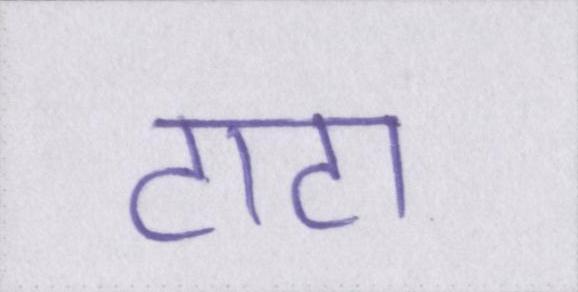 टाटा